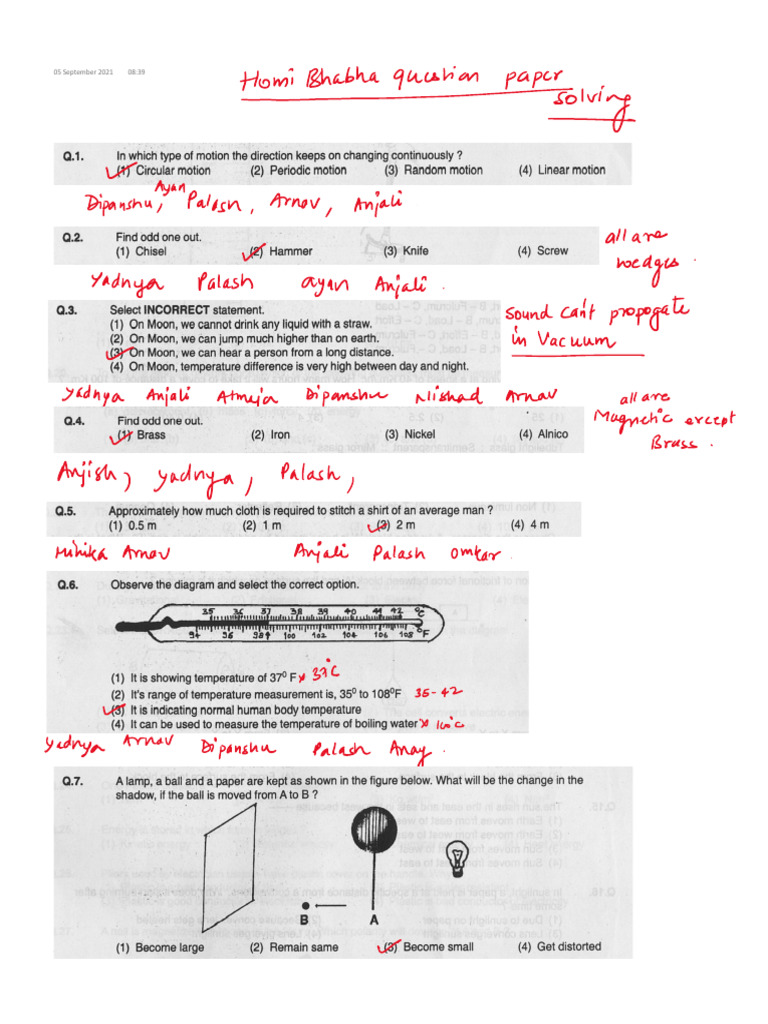 05 September 2021 08:39
Homi Bhabha question paper
solving
Q.1. In which type of motion the direction keeps on changing continuously ?
(1) Circular motion (2) Periodic motion (3) Random motion (4) Linear motion
Dipanshu, Ayan Palash, Arnav, Anjali
Q.2. Find odd one out.
(1) Chisel (2) Hammer (3) Knife (4) Screw
all are
wedges.
Yadnya Palash Ayan Anjali.
Q.3. Select INCORRECT statement.
(1) On Moon, we cannot drink any liquid with a straw.
(2) On Moon, we can jump much higher than on earth.
(3) On Moon, we can hear a person from a long distance.
(4) On Moon, temperature difference is very high between day and night.
Sound can't propogate
in Vacuum
Yadnya Anjali Atmeja Dipanshu Nishad Arnav
Q.4. Find odd one out.
(1) Brass (2) Iron (3) Nickel (4) Alnico
all are
Magnetic except
Brass.
Anjish, yadnya, Palash,
Q.5. Approximately how much cloth is required to stitch a shirt of an average man ?
(1) 0.5 m (2) 1 m (3) 2 m (4) 4 m
Mihika Arnav Anjali Palash Omkar.
Q.6. Observe the diagram and select the correct option.
35 36 37 38 39 40 41 42 °C
94 96 98.4 100 102 104 106 108 °F
(1) It is showing temperature of 37⁰ F x 37°C
(2) It's range of temperature measurement is, 35⁰ to 108⁰F 35-42
(3) It is indicating normal human body temperature
(4) It can be used to measure the temperature of boiling water x 100°C
Yadnya Arnav Dipanshu Palash Anay.
Q.7. A lamp, a ball and a paper are kept as shown in the figure below. What will be the change in the
shadow, if the ball is moved from A to B ?
B A
(1) Become large (2) Remain same (3) Become small (4) Get distorted